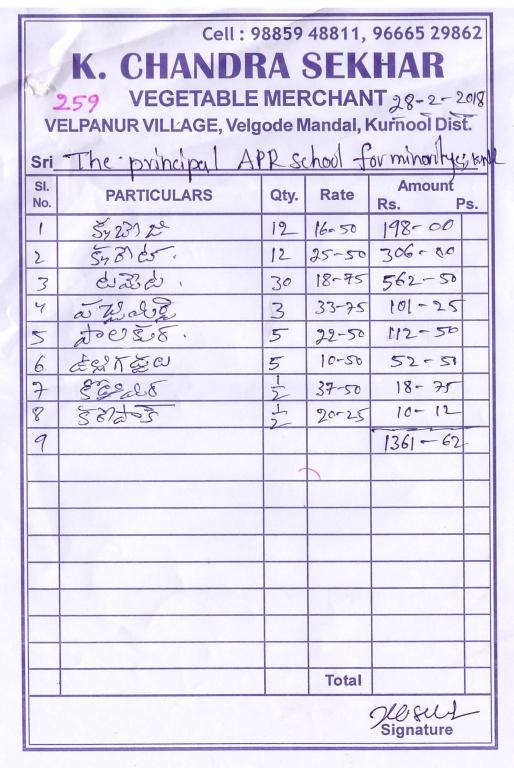 Cell : 98859 48811, 96665 29862
K. CHANDRA SEKHAR
259 VEGETABLE MERCHANT 28-2-2018
VELPANUR VILLAGE, Velgode Mandal, Kurnool Dist.
Sri The principal APR school for
Sl. No. PARTICULARS Qty. Rate Amount Rs. Ps.
1 క్యాబేజి 12 16-50 198-00
2 క్యారెట్. 12 25-50 306-00
3 టమోట. 30 18-75 562-50
4 పచ్చిమిర్చి 3 33-75 101-25
5 పాలకుర. 5 22-50 112-50
6 ఉల్లిగడ్డలు 5 10-50 52-50
7 కొత్తిమీర 1/2 37-50 18-75
8 కరేపాక్ 1/2 20-25 10-12
9 1361-62
Total
Signature